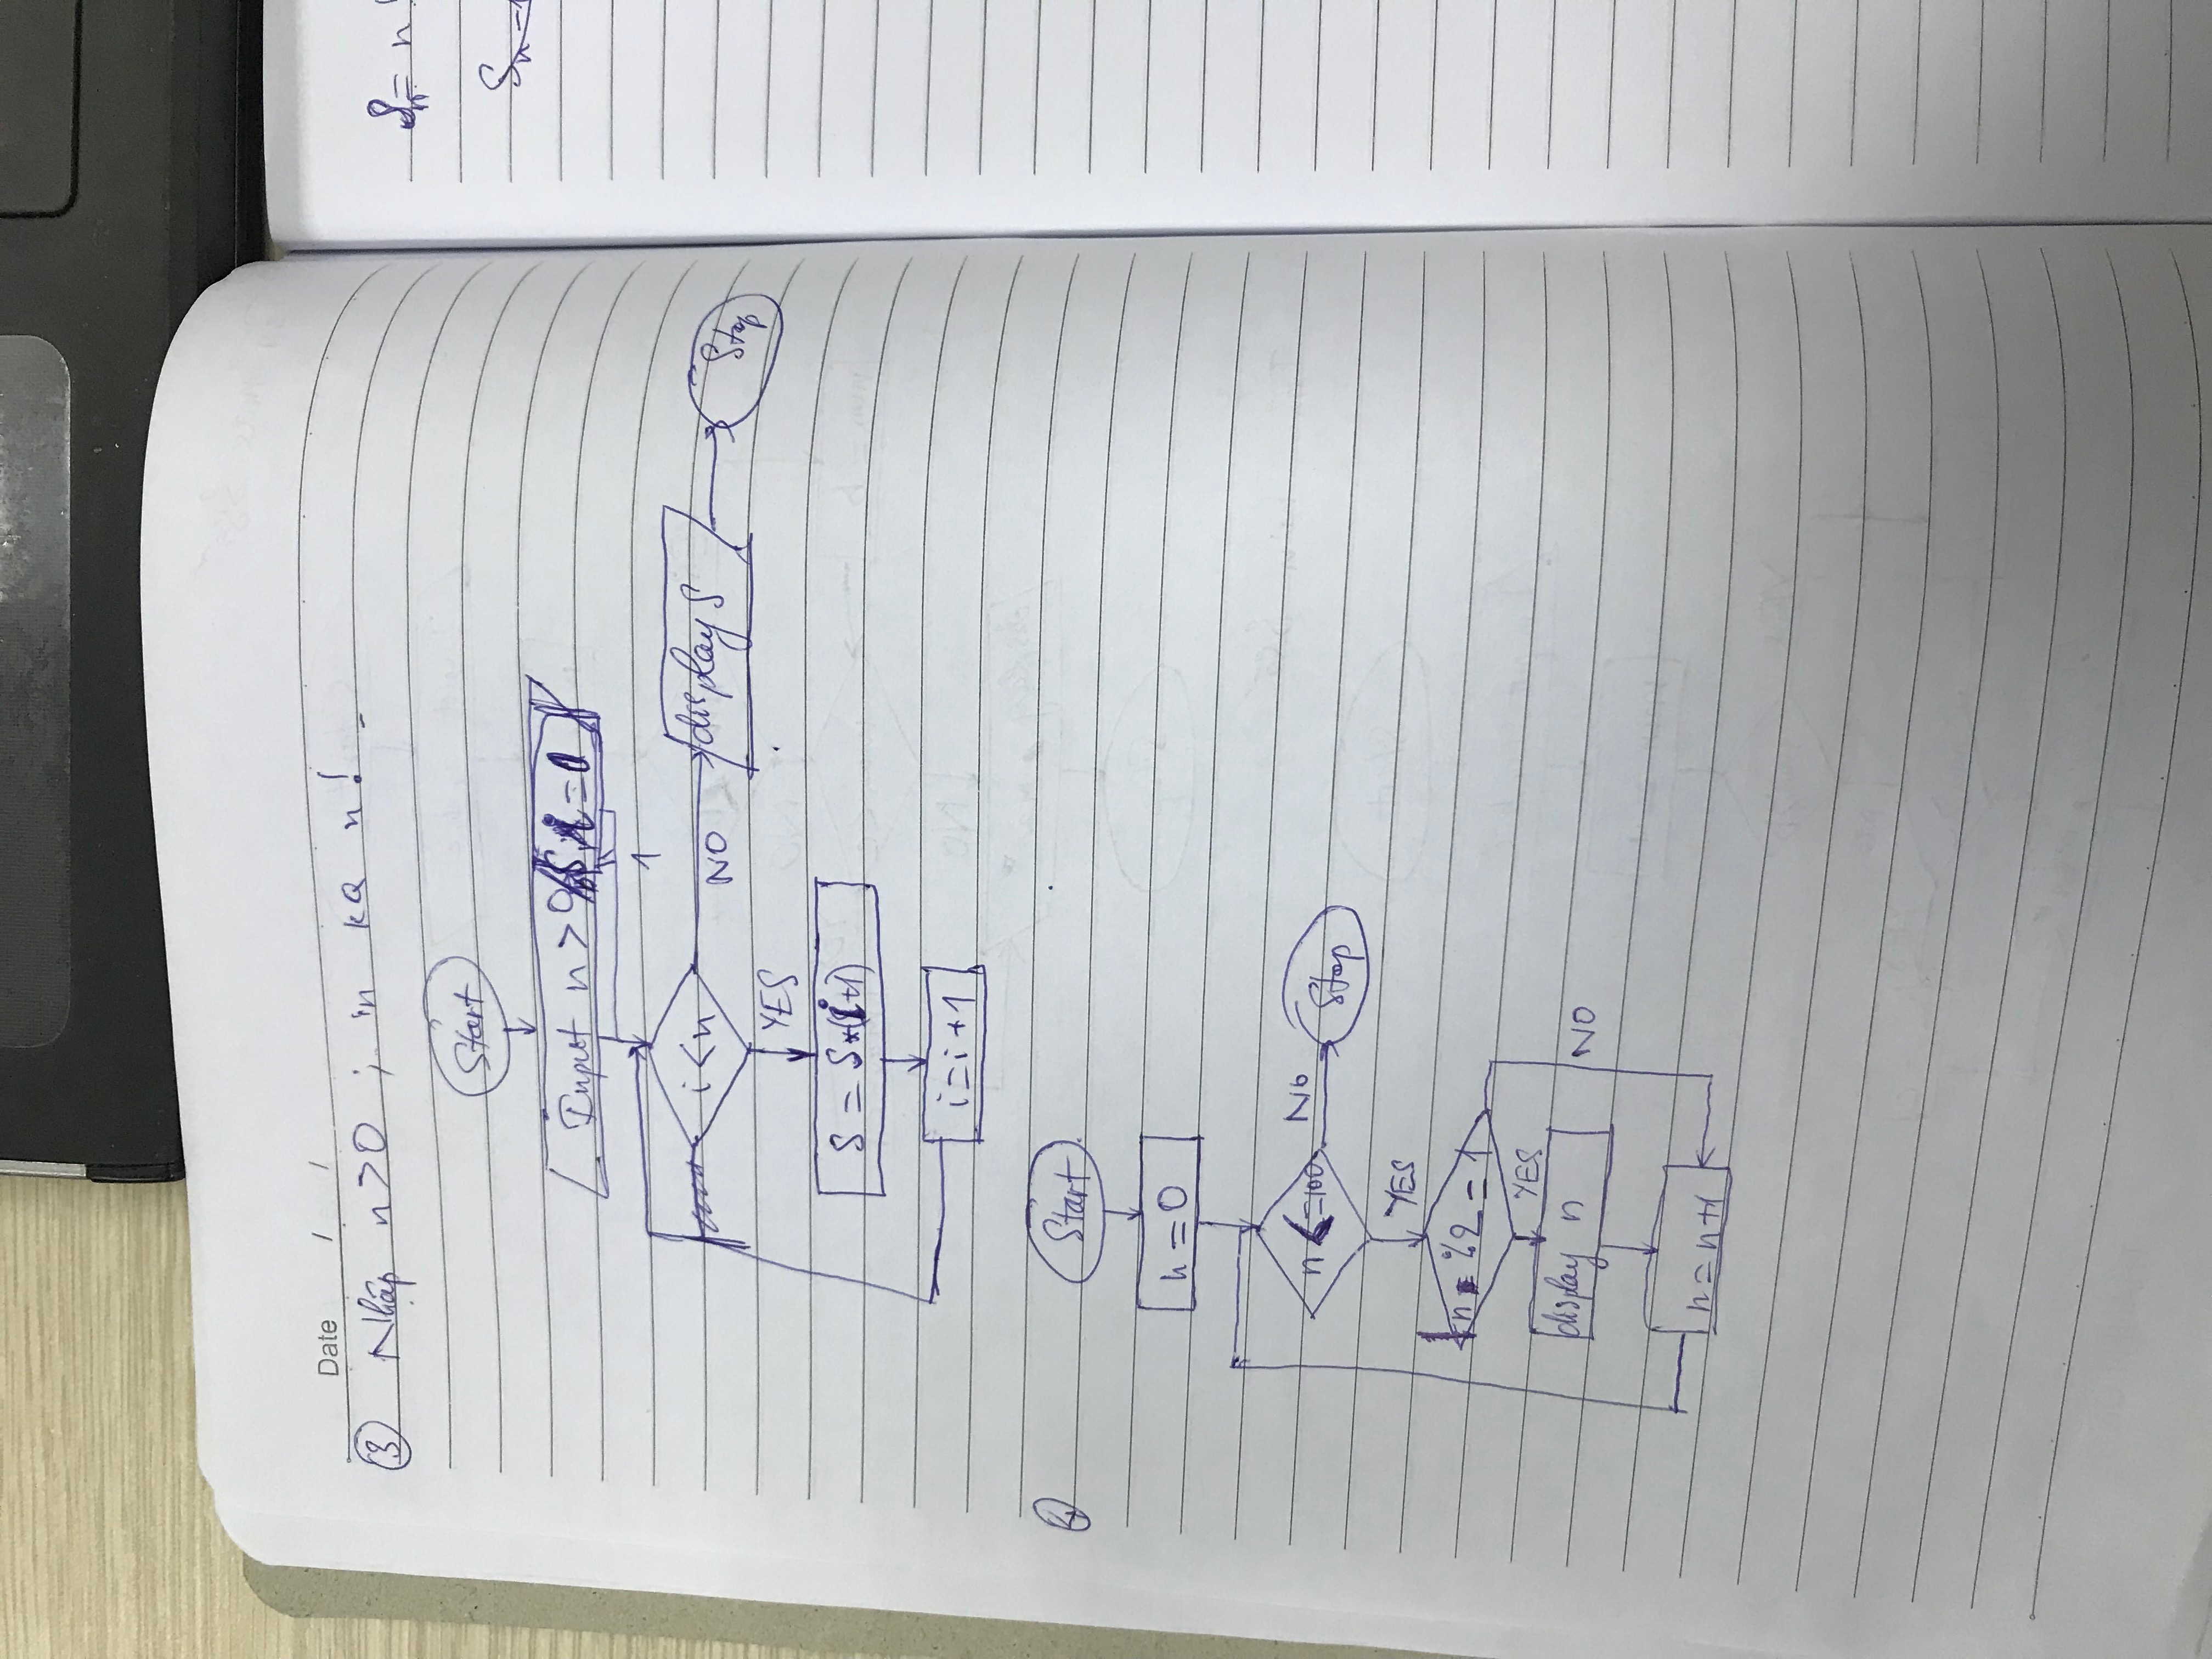 Date / /
③ Nhập n>0 ; in kQ n!
Start
Input n > 0 S i = 1
1
i<n
NO
display S
Stop
YES
S = S*(i+1)
i=i+1
④
Start
n=0
n<=100
No
Stop
YES
n %2 = 1
YES
display n
NO
n=n+1
Sn= n!
Sn-1